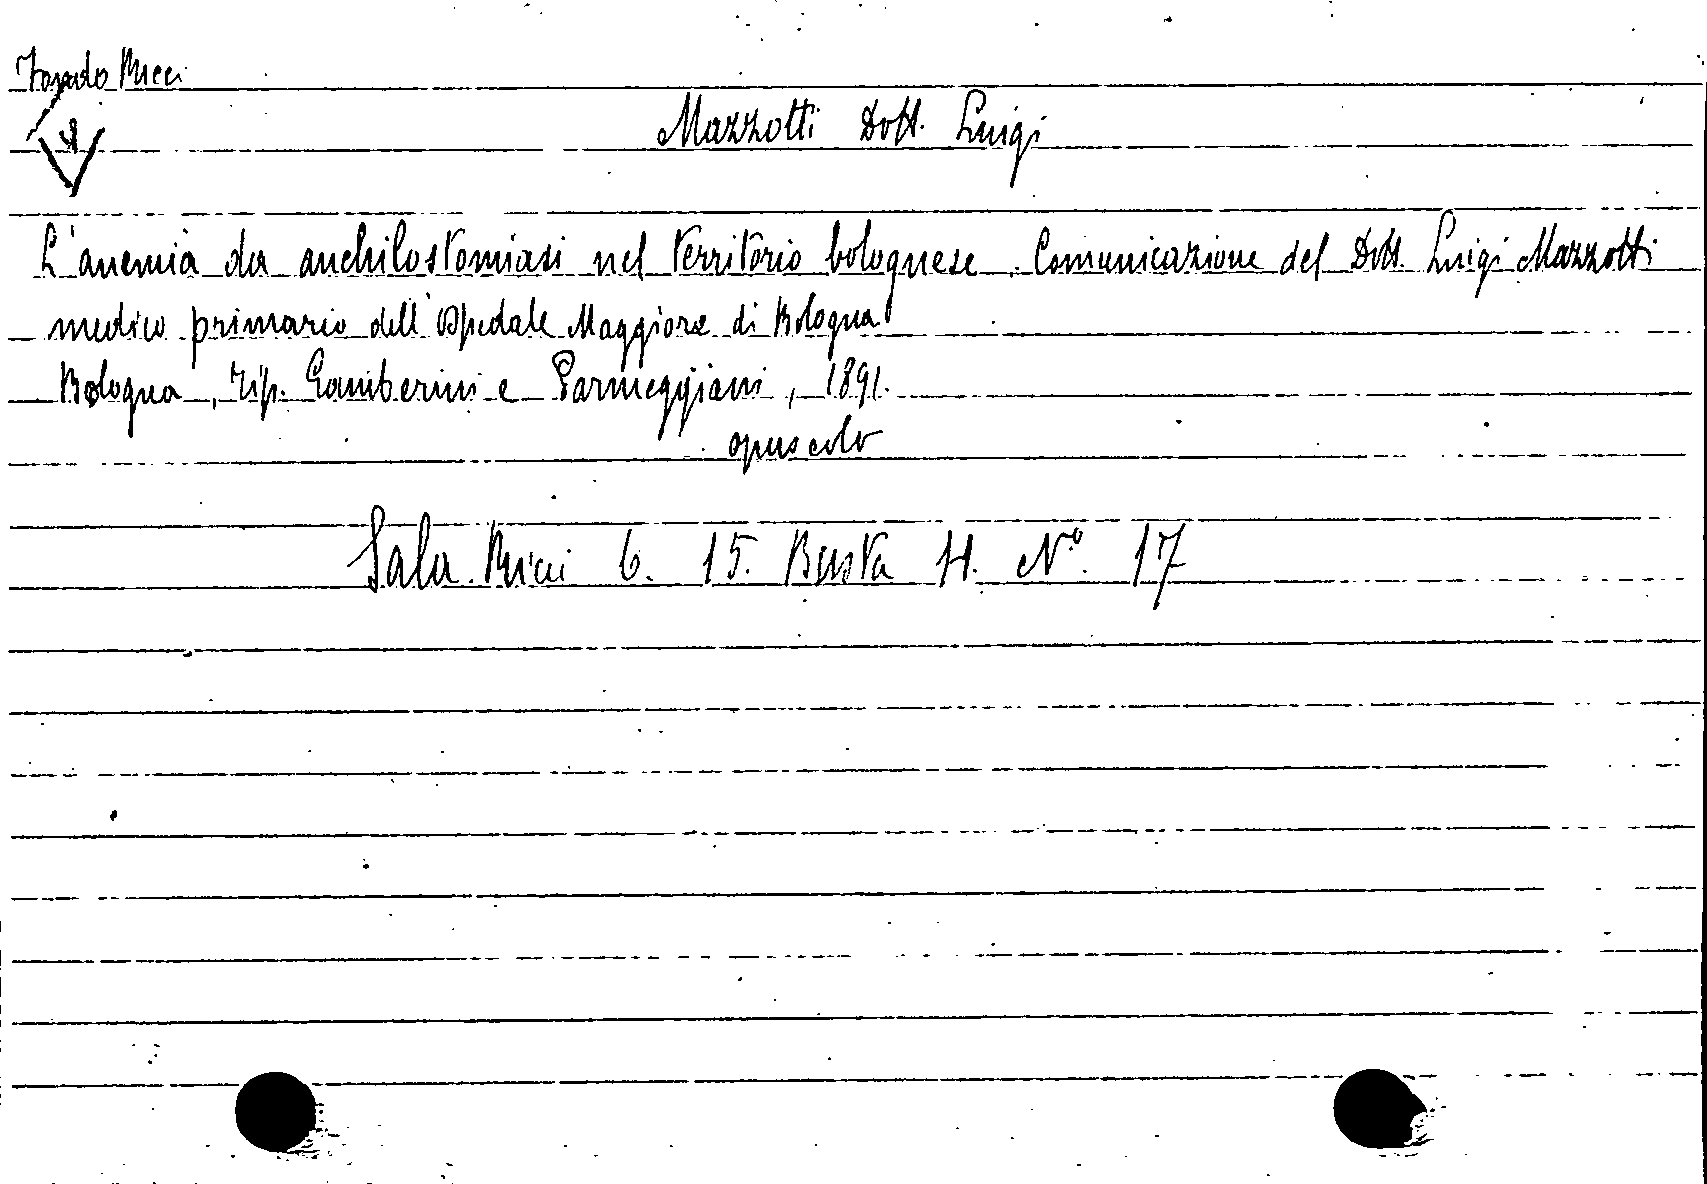 Fondo Ricci
Mazzotti Dott. Luigi
L'anemia da anchilostomiasi nel territorio bolognese. Comunicazione del Dott. Luigi Mazzotti
medico primario dell'Ospedale Maggiore di Bologna
Bologna, Tip. Gamberini e Parmeggiani, 1891.
opuscolo
Sala Ricci 6. 15. Busta H. N.° 17